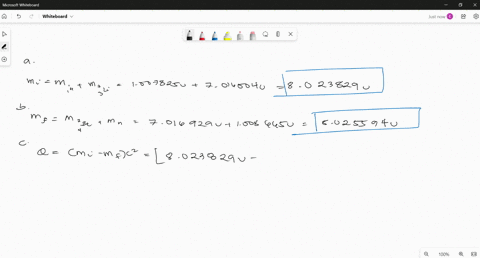 Microsoft Whiteboard
Whiteboard
Just now
a.
mᵢ = m₁H + m₃Li = 1.007825u + 7.016004u = 8.023829u
b.
m_f = m⁷₄Be + mₙ = 7.016929u + 1.008665u = 8.025594u
c
Q = (mᵢ - m_f)c² = [8.023829u -
100%